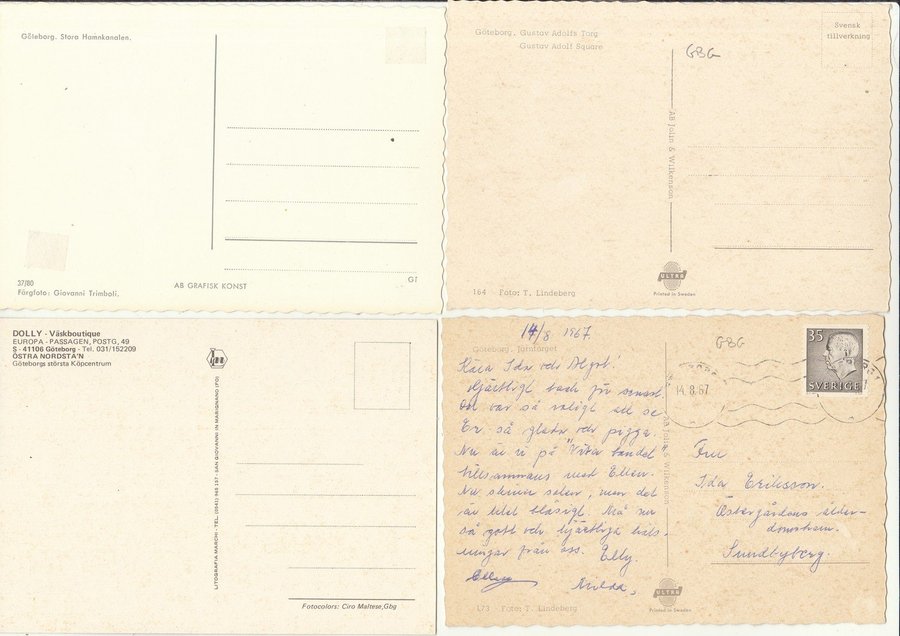 Göteborg. Stora Hamnkanalen.
37/80
Färgfoto: Giovanni Trimboli.
AB GRAFISK KONST
G1
Göteborg. Gustav Adolfs Torg
Gustav Adolf Square
GBG
Svensk
tillverkning
AB Jolin & Wilkenson
164 Foto: T. Lindeberg
ULTRA
Printed in Sweden
DOLLY - Väskboutique
EUROPA - PASSAGEN, POSTG, 49
S - 41106 Göteborg - Tel. 031/152209
ÖSTRA NORDSTA'N
Göteborgs största Köpcentrum
LITOGRAFIA MARCHI - TEL. (0041) 945 157 - SAN GIOVANNI IN MARIGNANO (FO)
Fotocolors: Ciro Maltese, Gbg
14/8 1967.
Göteborg. Järntorget
Kära Ida och Algot!
Hjärtligt tack för senast.
Det var så roligt att se
Er så glada och pigga.
Nu är vi på "Vita bandet"
tillsammans med Ellen.
Nu skiner solen, men det
är litet blåsigt. Må nu
så gott och hjärtliga häls-
ningar från oss. Elly
Ellen
GBG
14.8.67
35
SVERIGE
AB Jolin & Wilkenson
Fru
Ida Eriksson.
Östergårdens ålder-
domshem.
Sundbyberg.
173 Foto: T. Lindeberg
ULTRA
Printed in Sweden